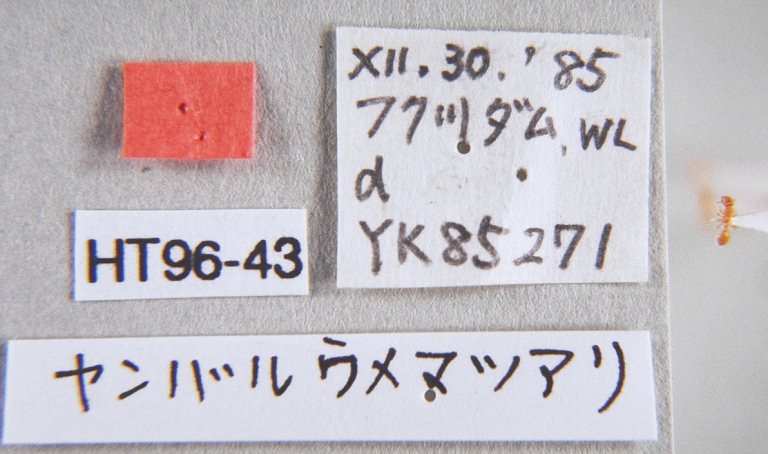 XII. 30. '85
フクツダム, WL
d
YK85271
HT96-43
ヤンバルウメマツアリ